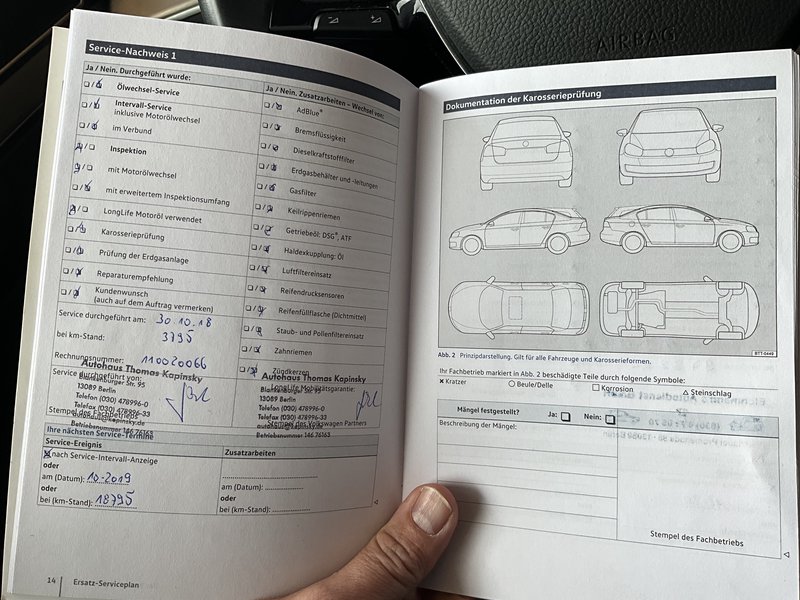 Service-Nachweis 1
Ja / Nein. Durchgeführt wurde:
Ölwechsel-Service
Intervall-Service
inklusive Motorölwechsel
im Verbund
Inspektion
mit Motorölwechsel
mit erweitertem Inspektionsumfang
LongLife Motoröl verwendet
Karosserieprüfung
Prüfung der Erdgasanlage
Reparaturempfehlung
Kundenwunsch
(auch auf dem Auftrag vermerken)
Service durchgeführt am: 30.10.18
bei km-Stand: 3795
Rechnungsnummer: 110020066
Service durchgeführt von:
Autohaus Thomas Kapinsky
Blankenburger Str. 95
13089 Berlin
Telefon (030) 478996-0
Telefax (030) 478996-33
autohaus@kapinsky.de
Betriebsnummer 146 76163
Stempel des Fachbetriebs
Ja / Nein. Zusatzarbeiten – Wechsel von:
AdBlue®
Bremsflüssigkeit
Dieselkraftstofffilter
Erdgasbehälter und -leitungen
Gasfilter
Keilrippenriemen
Getriebeöl: DSG®, ATF
Haldexkupplung: Öl
Luftfiltereinsatz
Reifendrucksensoren
Reifenfüllflasche (Dichtmittel)
Staub- und Pollenfiltereinsatz
Zahnriemen
Zündkerzen
LongLife Mobilitätsgarantie:
Autohaus Thomas Kapinsky
Blankenburger Str. 95
13089 Berlin
Telefon (030) 478996-0
Telefax (030) 478996-33
autohaus@kapinsky.de
Betriebsnummer 146 76163
Stempel des Volkswagen Partners
Ihre nächsten Service-Termine
Service-Ereignis
nach Service-Intervall-Anzeige
oder
am (Datum): 10-2019
oder
bei (km-Stand): 18795
Zusatzarbeiten
am (Datum):
oder
bei (km-Stand):
14
Ersatz-Serviceplan
Dokumentation der Karosserieprüfung
BTT-0449
Abb. 2 Prinzipdarstellung. Gilt für alle Fahrzeuge und Karosserieformen.
Ihr Fachbetrieb markiert in Abb. 2 beschädigte Teile durch folgende Symbole:
× Kratzer
○ Beule/Delle
□ Korrosion
△ Steinschlag
Mängel festgestellt? Ja: Nein:
Beschreibung der Mängel:
Stempel des Fachbetriebs
AIRBAG